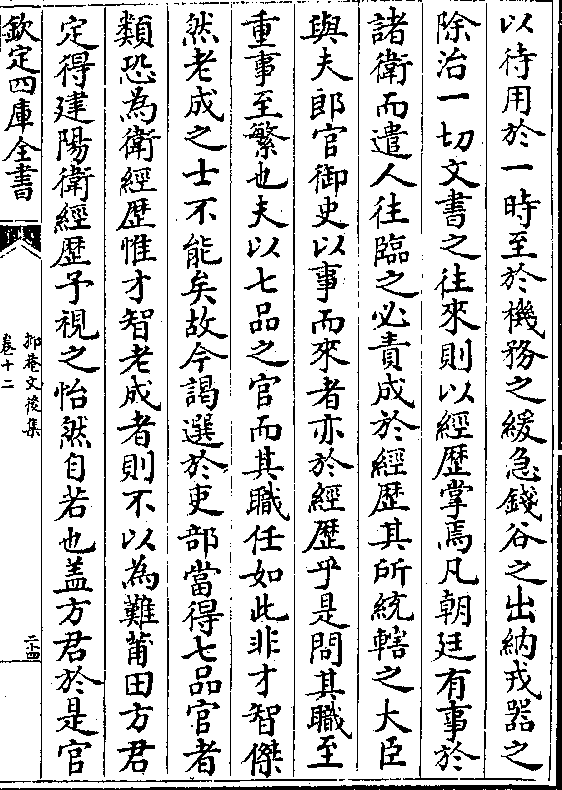 以待用於一時至於機務之緩急錢谷之出納戎器之
除治一切文書之往來則以經歴掌焉凡朝廷有事於
諸衛而遣人往臨之必責成於經歴其所統轄之大臣
與夫郎官御史以事而來者亦於經歴乎是問其職至
重事至繁也夫以七品之官而其職任如此非才智傑
然老成之士不能矣故今謁選於吏部當得七品官者
類恐為衛經歴惟才智老成者則不以為難莆田方君
定得建陽衛經歴予視之怡然自若也盖方君於是官
欽定四庫全書
抑菴文後集
卷十二
二十四